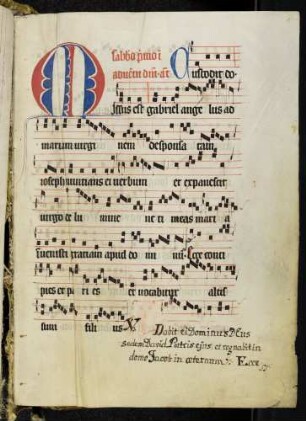 Sabbo pmo i
adventu dni. ad
Custodit do
Missus est gabriel ange lus ad
mariam virgi nem desponsa tam
ioseph nuntians ei verbum et expavescit
virgo de lu mine ne ti meas mari a
invenisti gratiam apud do mi num. Ecce conci
pies et pari es et vocabitur altis
simi fili us. V
Dabit ei Dominus Deus
sedem David Patris ejus, et regnabit in
domo Jacob in æternum. Ecce